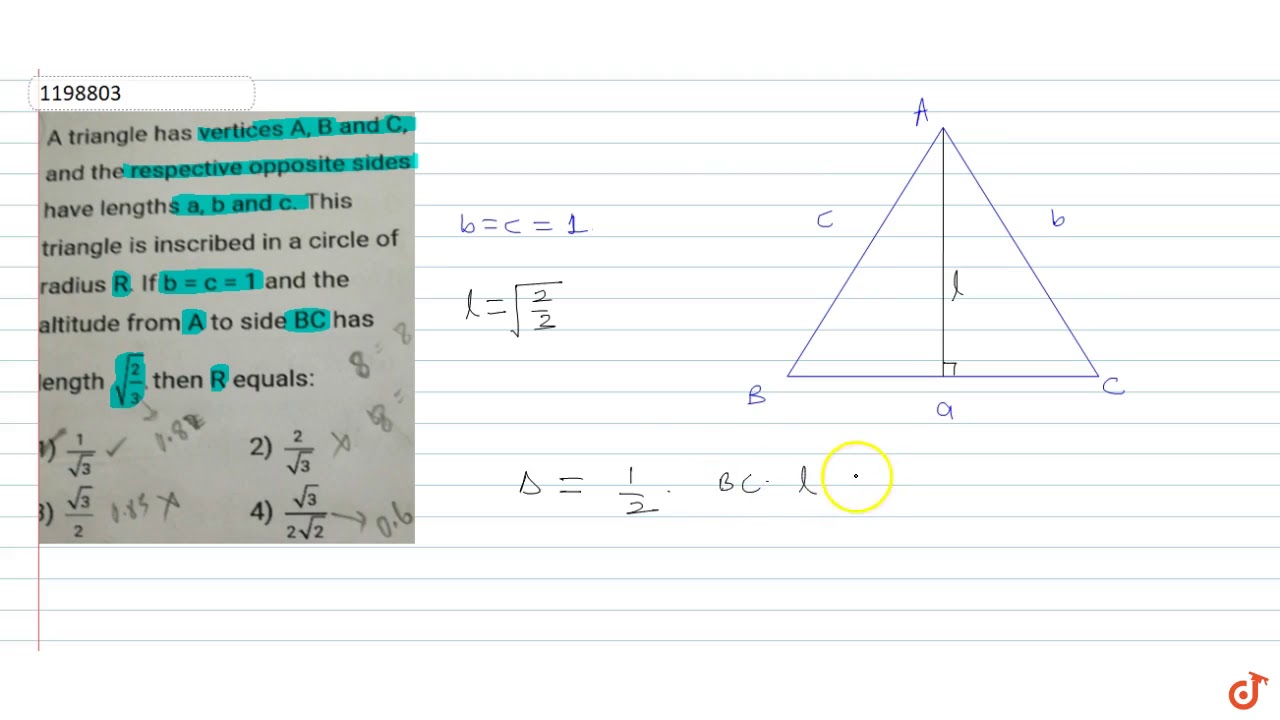 1198803
A triangle has vertices A, B and C,
and the respective opposite sides
have lengths a, b and c. This
triangle is inscribed in a circle of
radius R. If b = c = 1 and the
altitude from A to side BC has
length √(2/3), then R equals:
1) 1/√3 ✓
0.82
2) 2/√3 ×
3) √3/2 0.85 ×
4) √3/(2√2) → 0.6
8 = 8
8 =
b = c = 1
l = √(2/2)
A
c
b
l
B
C
a
Δ = 1/2 . BC. l